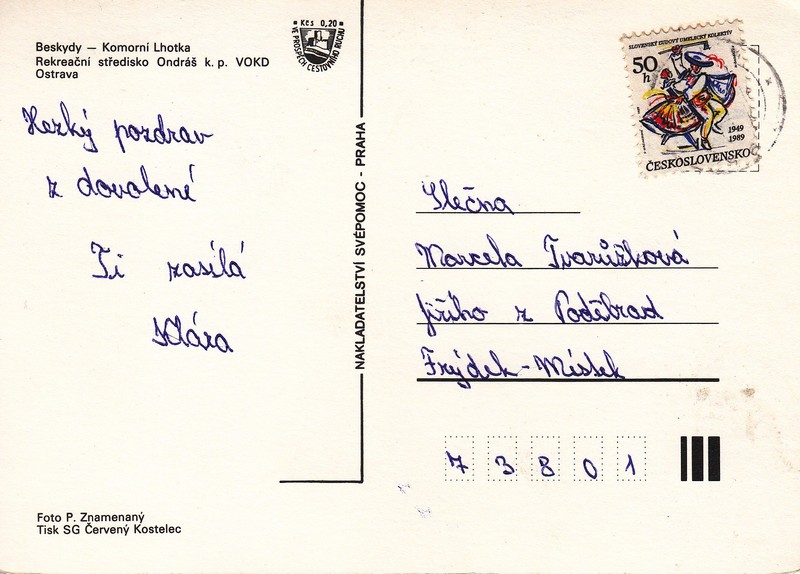 Beskydy — Komorní Lhotka
Rekreační středisko Ondráš k. p. VOKD
Ostrava
Kčs 0,20
VE PROSPĚCH CESTOVNÍHO RUCHU
Hezký pozdrav
z dovolené
Ti zasílá
Klára
Foto P. Znamenaný
Tisk SG Červený Kostelec
NAKLADATELSTVÍ SVÉPOMOC - PRAHA
SLOVENSKÝ ĽUDOVÝ UMELECKÝ KOLEKTÍV
50
h
1949
1989
ČESKOSLOVENSKO
Slečna
Marcela Tvarůžková
Jiřího z Poděbrad
Frýdek-Místek
73801